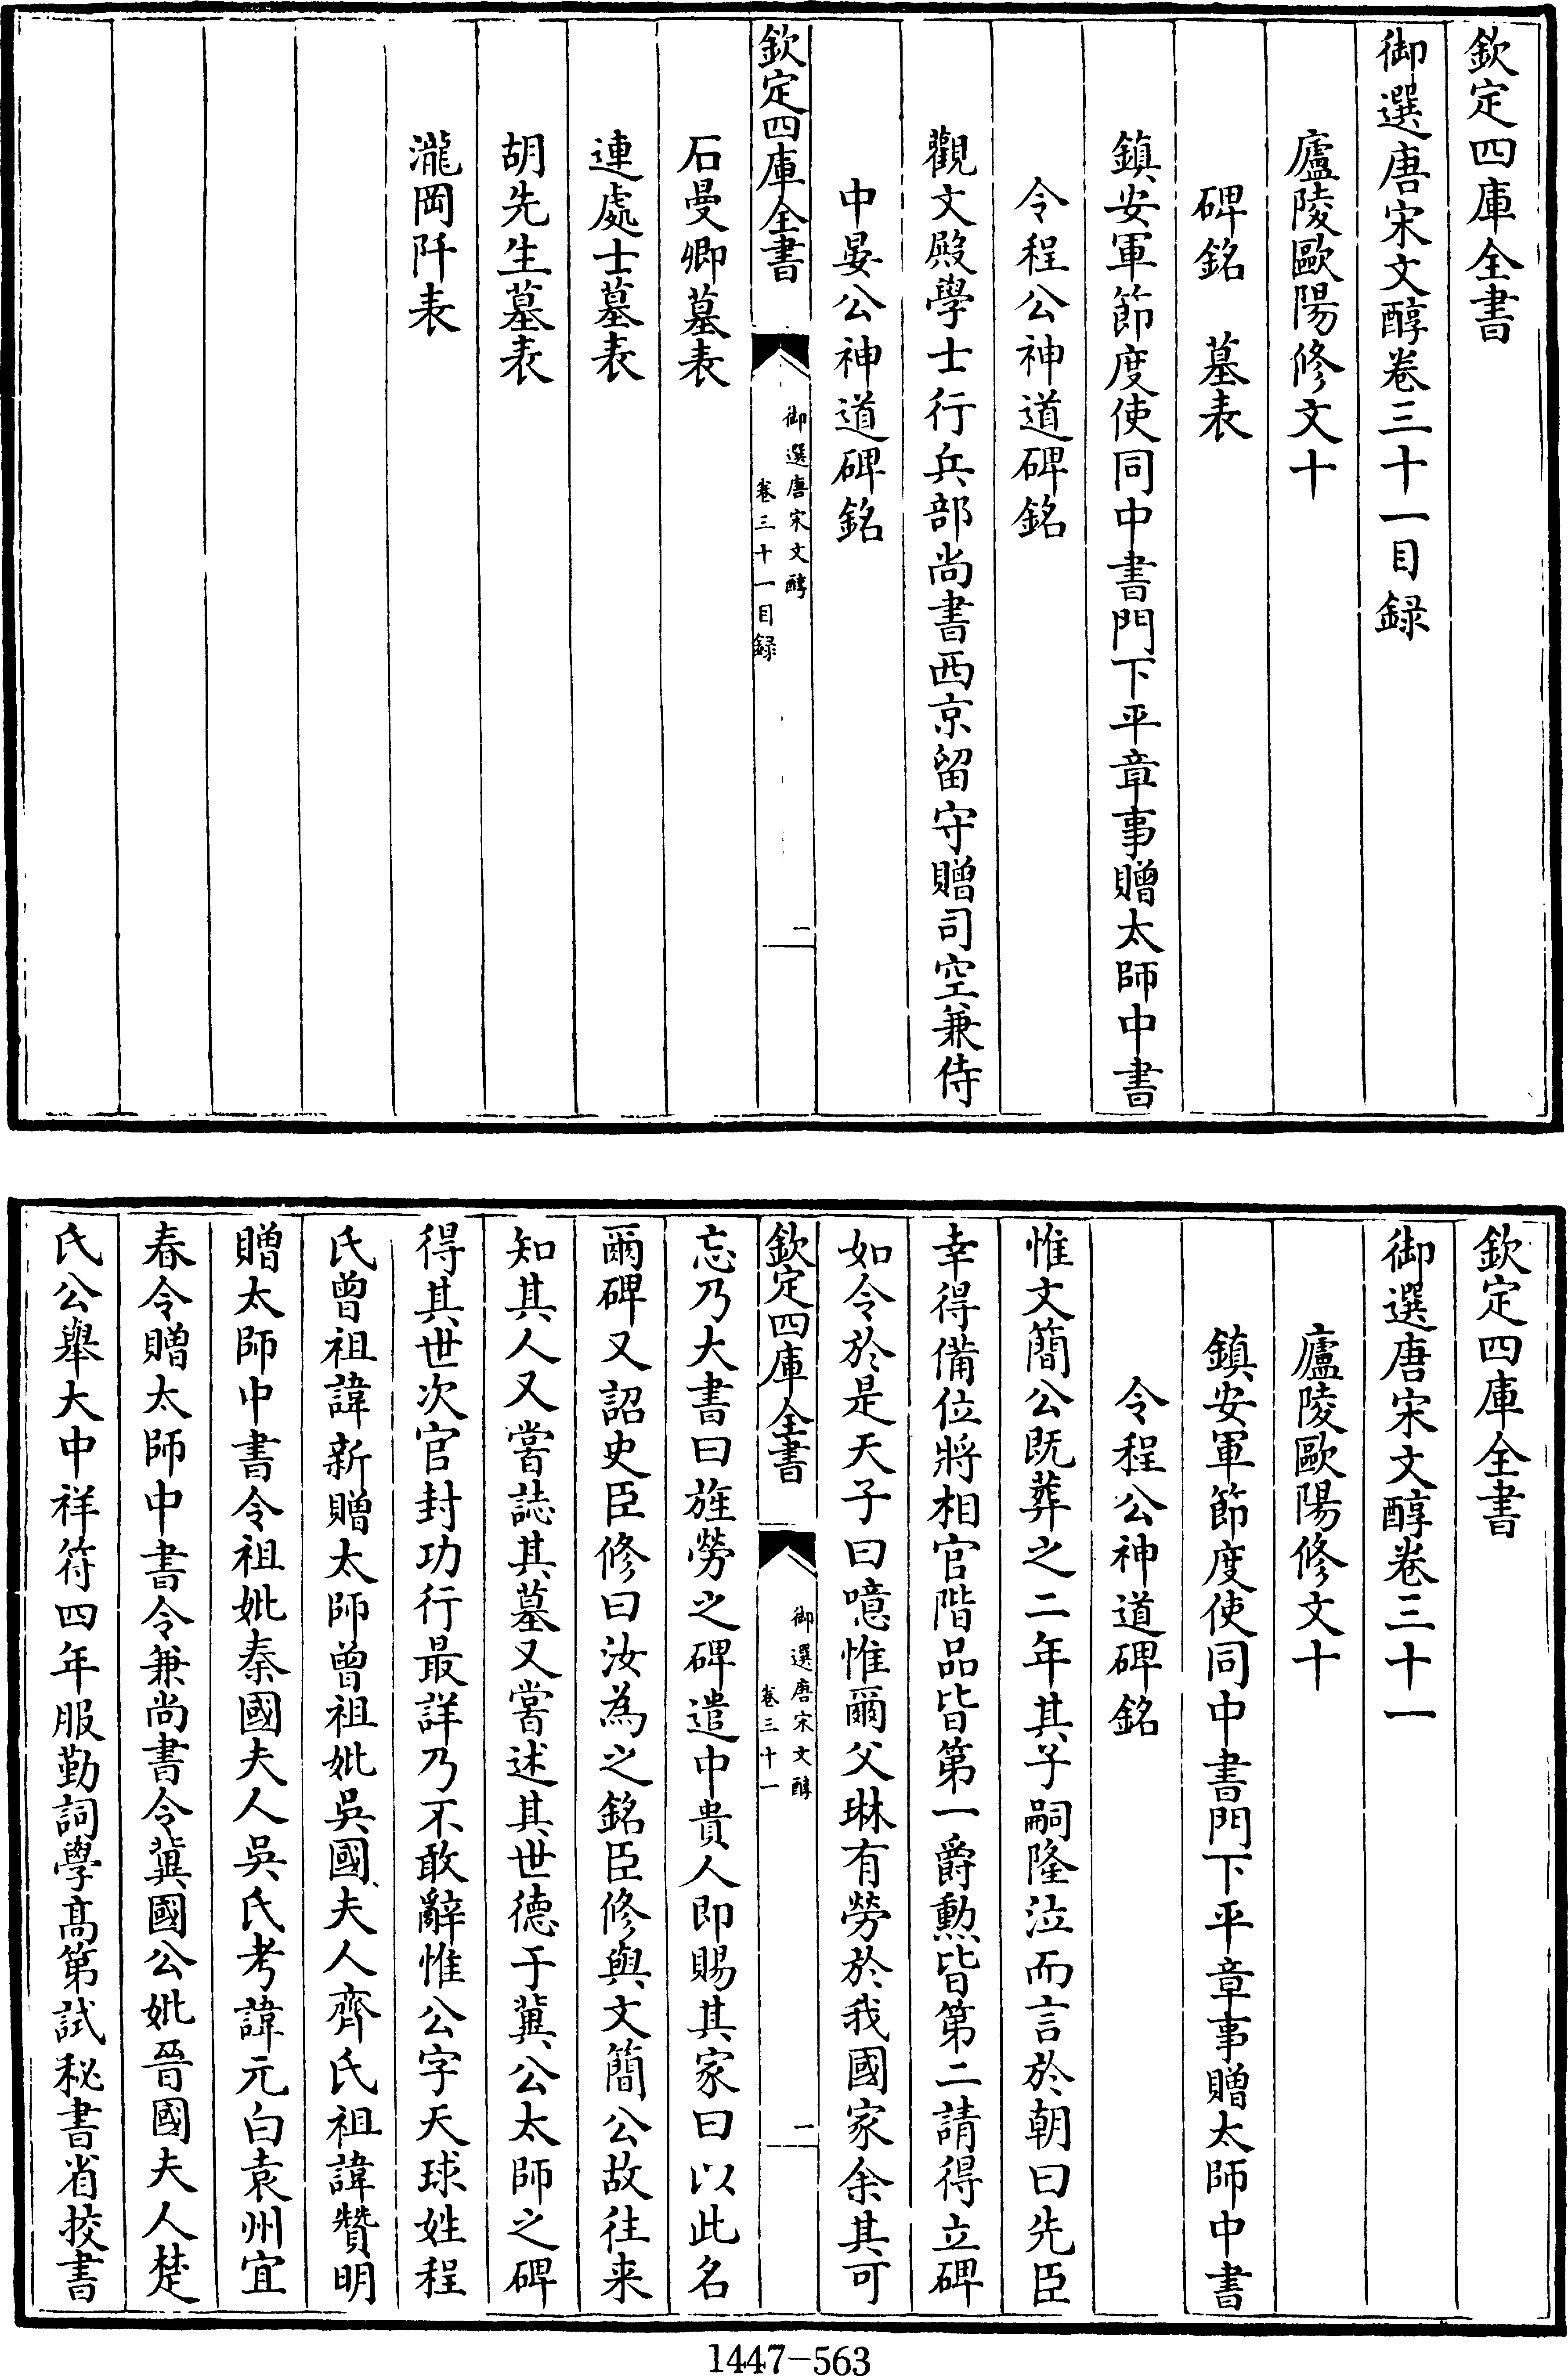 欽定四庫全書
御選唐宋文醇卷三十一目録
廬陵歐陽修文十
碑銘　墓表
鎮安軍節度使同中書門下平章事贈太師中書
令程公神道碑銘
觀文殿學士行兵部尚書西京留守贈司空兼侍
中晏公神道碑銘
欽定四庫全書
御選唐宋文醇
卷三十一目録
一
石曼卿墓表
連處士墓表
胡先生墓表
瀧岡阡表
欽定四庫全書
御選唐宋文醇卷三十一
廬陵歐陽修文十
鎮安軍節度使同中書門下平章事贈太師中書
令程公神道碑銘
惟文簡公既葬之二年其子嗣隆泣而言於朝曰先臣
幸得備位將相官階品皆第一爵勲皆第二請得立碑
如令於是天子曰噫惟爾父琳有勞於我國家余其可
欽定四庫全書
御選唐宋文醇
卷三十一
一
忘乃大書曰旌勞之碑遣中貴人即賜其家曰以此名
爾碑又詔史臣修曰汝為之銘臣修與文簡公故往来
知其人又嘗誌其墓又嘗述其世德于冀公太師之碑
得其世次官封功行最詳乃不敢辭惟公字天球姓程
氏曾祖諱新贈太師曾祖妣吳國夫人齊氏祖諱贊明
贈太師中書令祖妣秦國夫人吳氏考諱元白袁州宜
春令贈太師中書令兼尚書令冀國公妣晉國夫人楚
氏公舉大中祥符四年服勤詞學髙第試秘書省挍書
1447-563